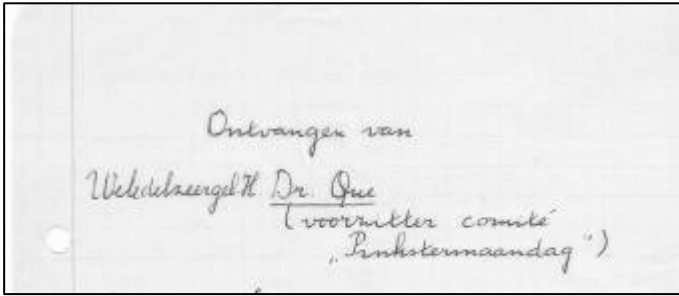 Ontvangen van
WeledelzeergelH. Dr. Que
(voorzitter comité
„Pinkstermaandag")